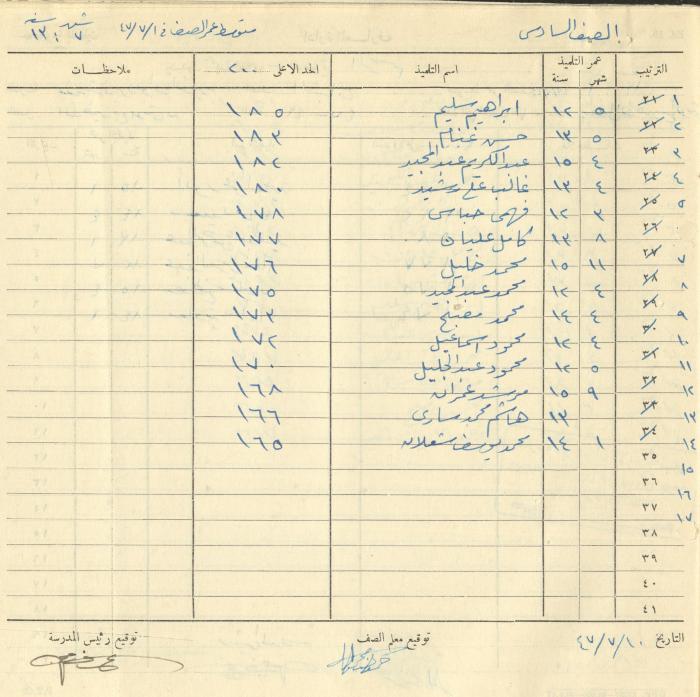 الصف السادس متوسط عمر الصف في ٤٧/٧/١ شهر ٧ سنة ١٣
الترتيب عمر التلميذ شهر سنة اسم التلميذ الحد الاعلى ٢٠٠ ملاحظات
١ ٢١ ٥ ١٢ ابراهيم سليم ١٨٥
٢ ٢٢ ٥ ١٣ حسن غنام ١٨٣
٣ ٢٣ ٤ ١٥ عبد الكريم عبد المجيد ١٨٢
٤ ٢٤ ٤ ١٣ غالب علي رشيد ١٨٠
٥ ٢٥ ٣ ١٢ فهمي عباس ١٧٨
٢٦ ٨ ١٣ كامل عليان ١٧٧
٧ ٢٧ ١١ ١٥ محمد خليل ١٧٦
٨ ٢٨ ٤ ١٢ محمد عبد المجيد ١٧٥
٩ ٢٩ ٤ ١٤ محمد ١٧٣
١٠ ٣٠ ٤ ١٢ محمود اسماعيل ١٧٢
١١ ٣١ ٥ ١٢ محمود عبد الجليل ١٧٠
١٢ ٣٢ ٩ ١٥ مرشد عمران ١٦٨
١٣ ٣٣ ١٣ هاشم محمد ساري ١٦٦
١٤ ٣٤ ١ ١٤ محمد يوسف شعلان ١٦٥
١٥ ٣٥
١٦ ٣٦
١٧ ٣٧
٣٨
٣٩
٤٠
٤١
التاريخ ٤٧/٧/١٠ توقيع معلم الصف توقيع رئيس المدرسة